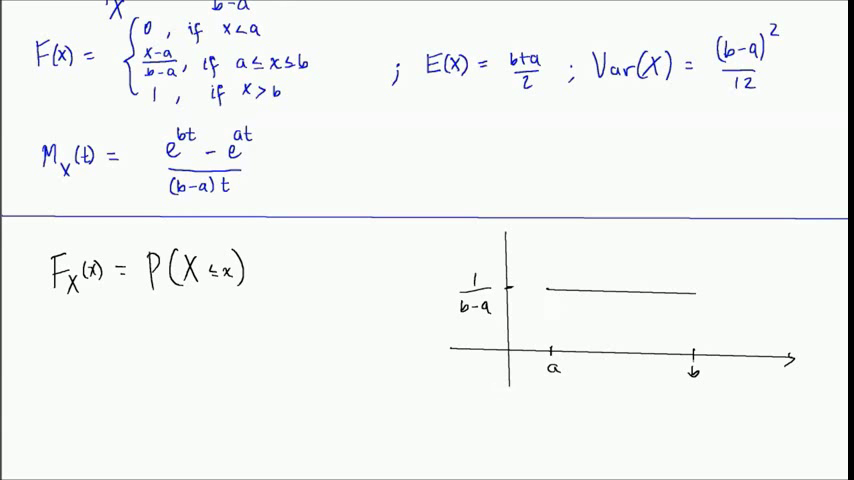 X b-a
F(x) = { 0 , if x<a
x-a/b-a , if a≤x≤b
1 , if x>b
; E(X) = b+a/2 ; Var(X) = (b-a)²/12
M_X(t) = e^bt - e^at/(b-a)t
F_X(x) = P(X≤x)
1/b-a
a b